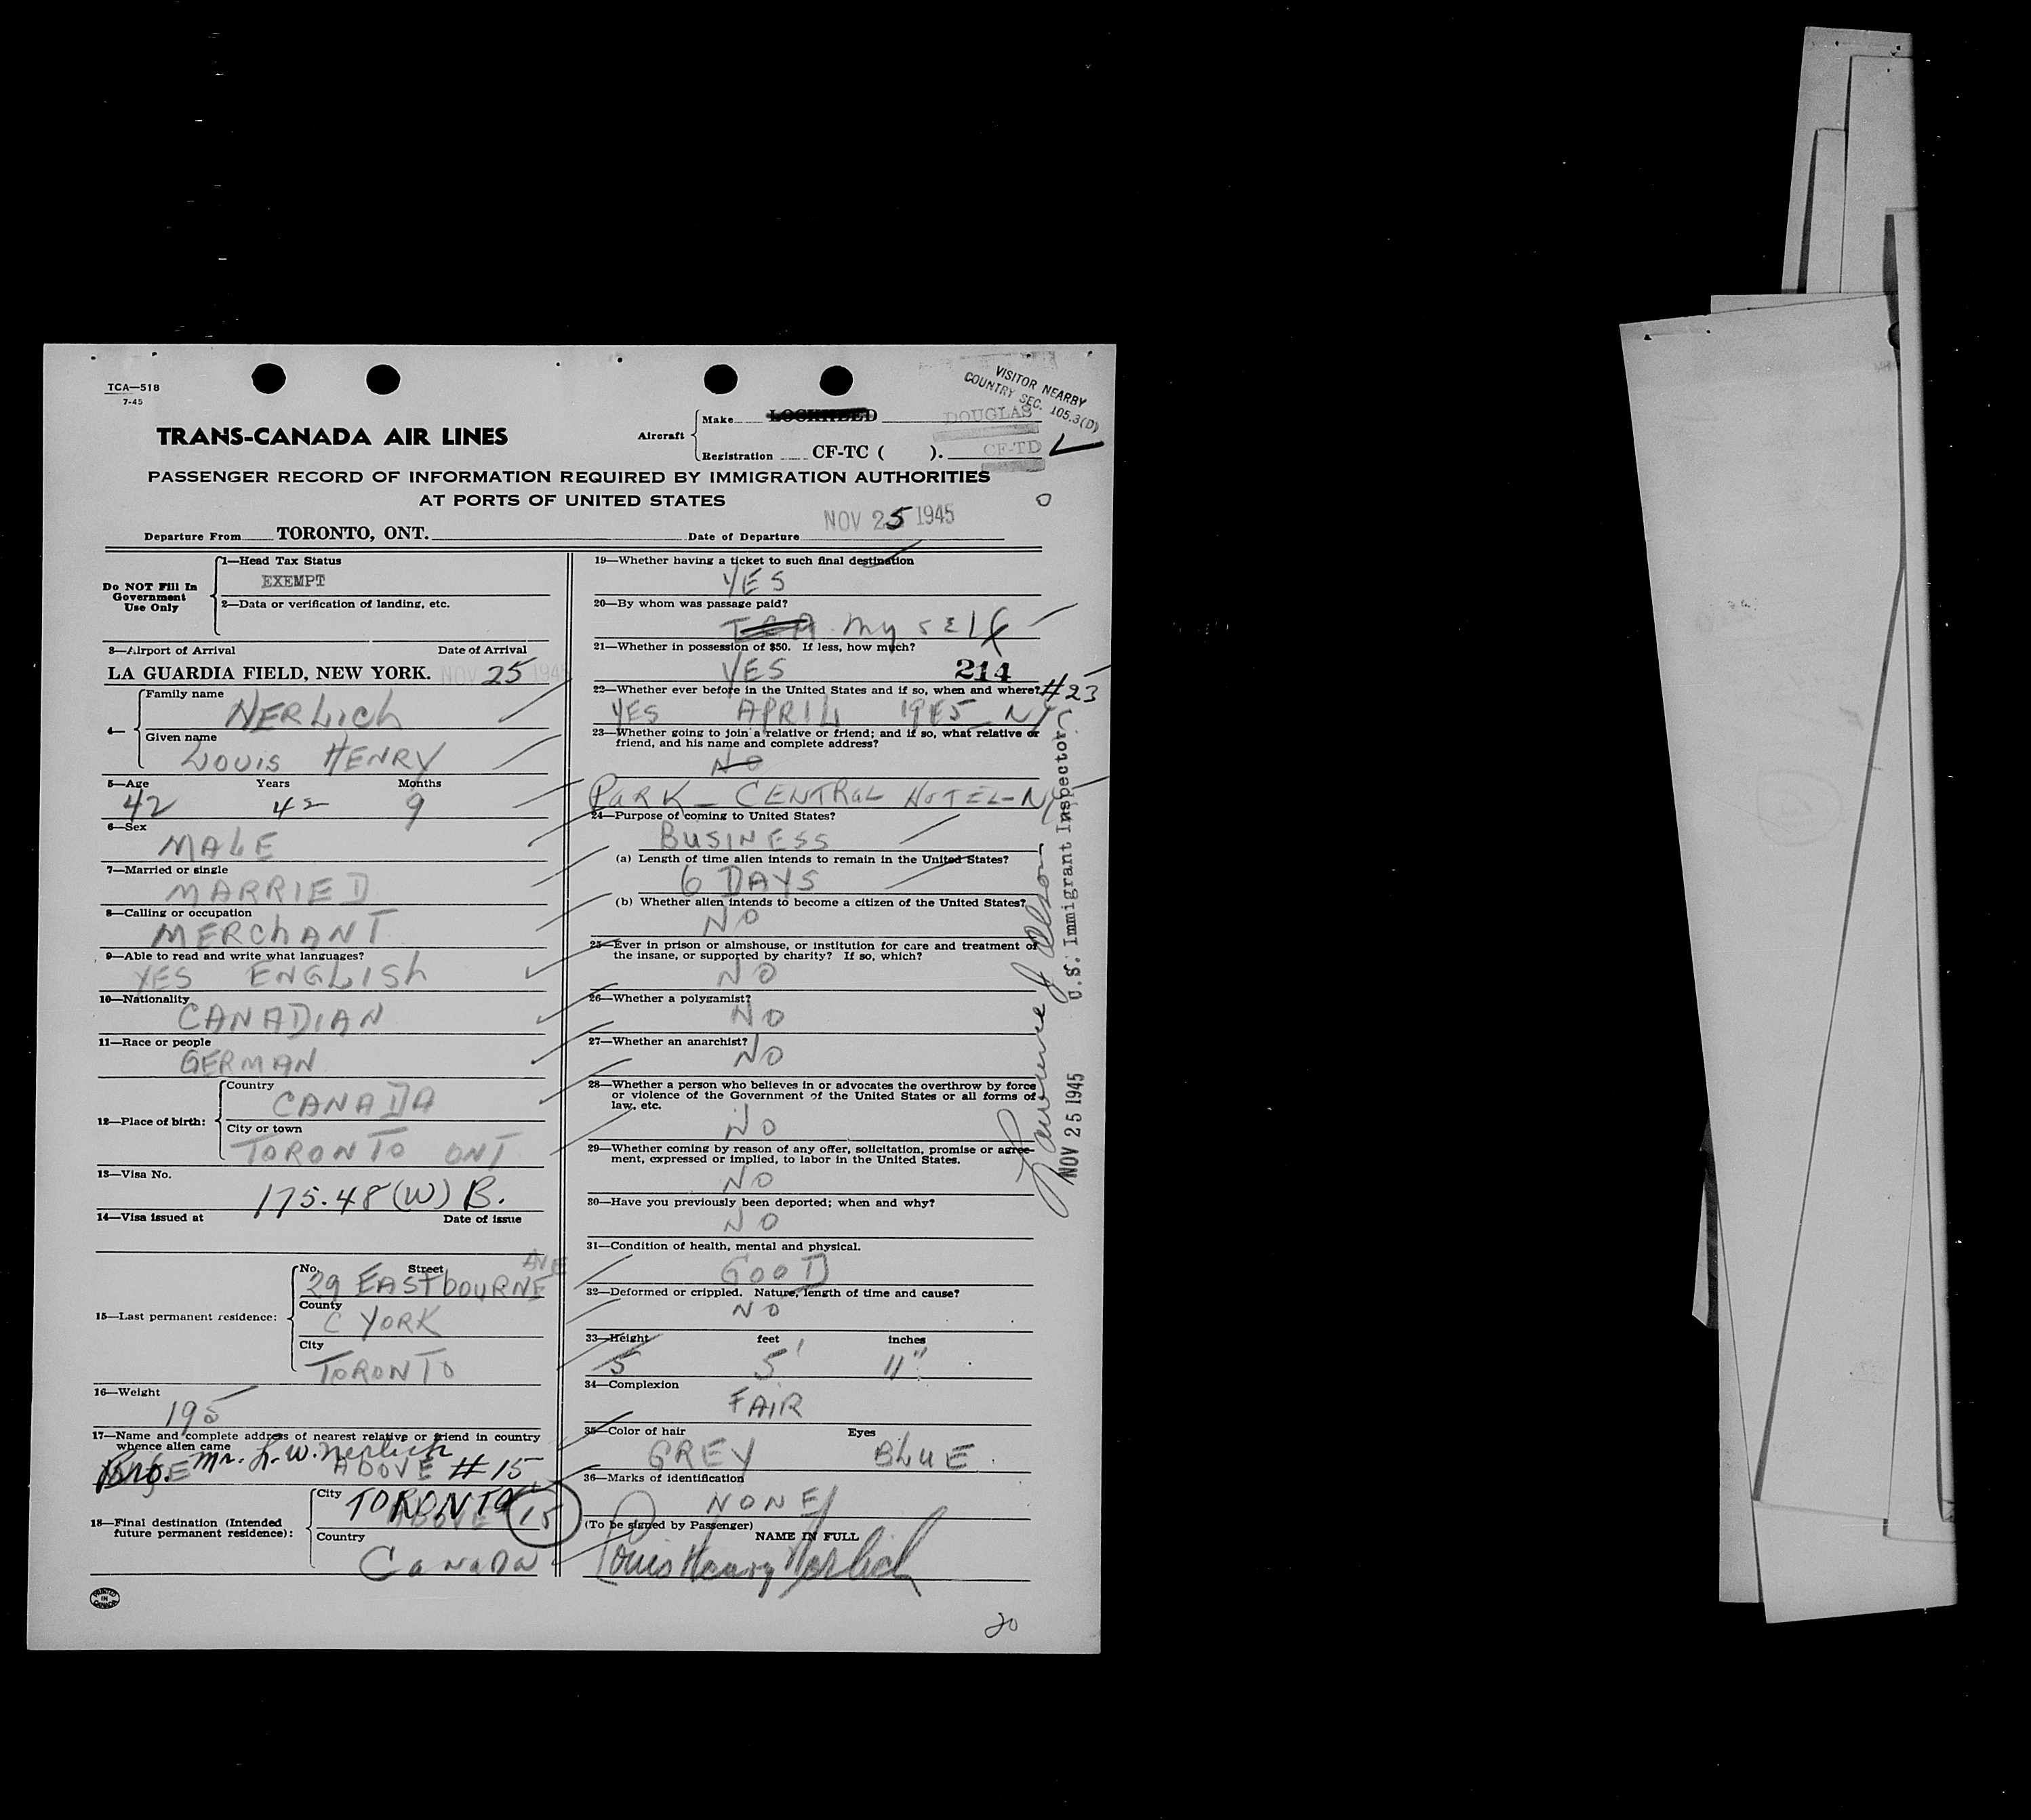 TCA—518
7-45
VISITOR NEARBY
COUNTRY SEC. 105.3(D)
TRANS-CANADA AIR LINES
Aircraft
Make LOCKHEED DOUGLAS
Registration CF-TC ( ). CF-TD
PASSENGER RECORD OF INFORMATION REQUIRED BY IMMIGRATION AUTHORITIES
AT PORTS OF UNITED STATES
NOV 25 1945
Departure From TORONTO, ONT. Date of Departure
Do NOT Fill In
Government
Use Only
1—Head Tax Status
EXEMPT
2—Data or verification of landing, etc.
3—Airport of Arrival Date of Arrival
LA GUARDIA FIELD, NEW YORK. NOV 25 1945
4—
Family name
NERLICH
Given name
LOUIS HENRY
5—Age Years Months
42 42 9
6—Sex
MALE
7—Married or single
MARRIED
8—Calling or occupation
MERCHANT
9—Able to read and write what languages?
YES ENGLISH
10—Nationality
CANADIAN
11—Race or people
GERMAN
12—Place of birth:
Country
CANADA
City or town
TORONTO ONT
13—Visa No.
175.48 (W) B.
14—Visa issued at Date of issue
15—Last permanent residence:
No. Street
29 EASTBOURNE AVE
County
C YORK
City
TORONTO
16—Weight
195
17—Name and complete address of nearest relative or friend in country
whence alien came
Bro. Mr. L. W. Nerlich
ABOVE #15
18—Final destination (Intended
future permanent residence):
City
TORONTO
ABOVE 15
Country
CANADA
PRINTED
IN
CANADA
19—Whether having a ticket to such final destination
YES
20—By whom was passage paid?
TCA My SELF
21—Whether in possession of $50. If less, how much?
YES 214
22—Whether ever before in the United States and if so, when and where? #23
YES APRIL 1945 NYC
23—Whether going to join a relative or friend; and if so, what relative or
friend, and his name and complete address?
NO
PARK — CENTRAL HOTEL — NYC
24—Purpose of coming to United States?
BUSINESS
(a) Length of time alien intends to remain in the United States?
6 DAYS
(b) Whether alien intends to become a citizen of the United States?
NO
25—Ever in prison or almshouse, or institution for care and treatment of
the insane, or supported by charity? If so, which?
NO
26—Whether a polygamist?
NO
27—Whether an anarchist?
NO
28—Whether a person who believes in or advocates the overthrow by force
or violence of the Government of the United States or all forms of
law, etc.
NO
29—Whether coming by reason of any offer, solicitation, promise or agree-
ment, expressed or implied, to labor in the United States.
NO
30—Have you previously been deported; when and why?
NO
31—Condition of health, mental and physical.
GOOD
32—Deformed or crippled. Nature, length of time and cause?
NO
33—Height feet inches
5 5' 11"
34—Complexion
FAIR
35—Color of hair Eyes
GREY BLUE
36—Marks of identification
NONE
(To be signed by Passenger)
NAME IN FULL
Louis Henry Nerlich
20
NOV 25 1945 U.S. Immigrant Inspector